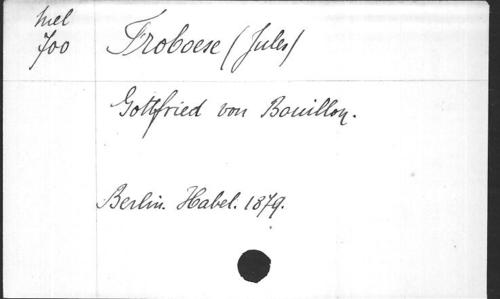 Mel
700
Froboese (Jules)
Gottfried von Bouillon.
Berlin. Habel. 1879.